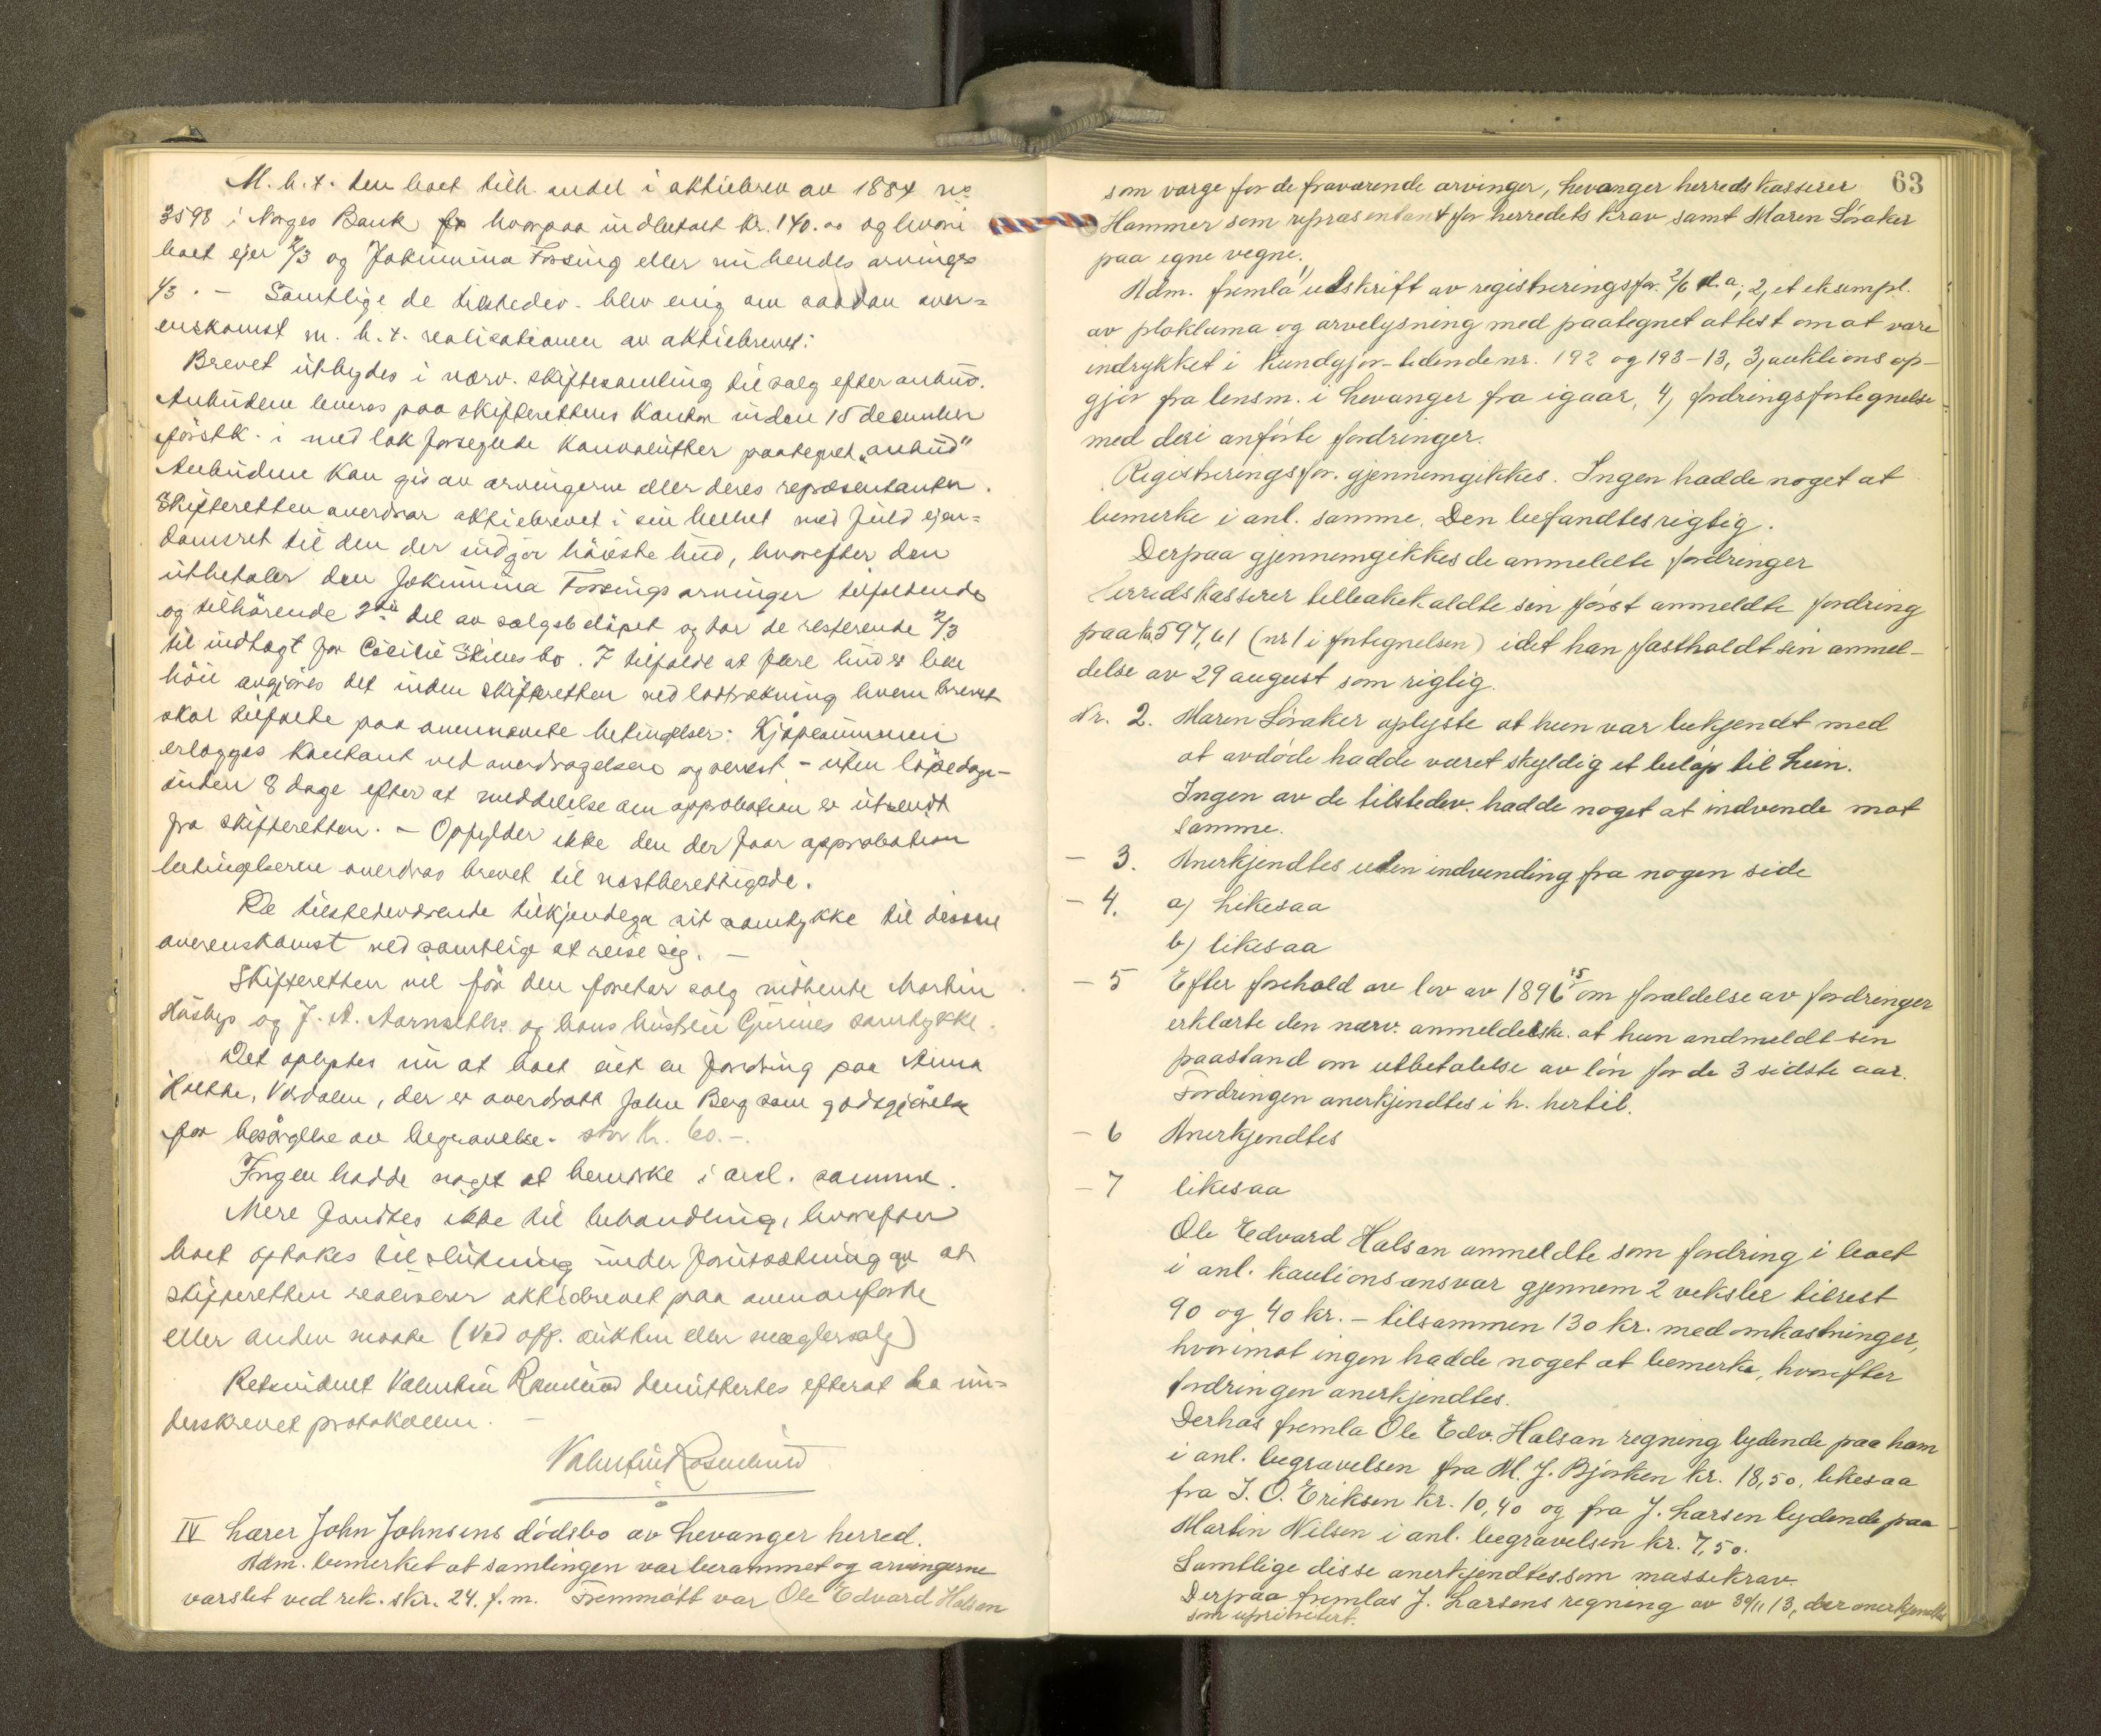 M. h. t. den boet tilh. andel i aktiebrev av 1884 no
3598 i Norges Bank hvorpaa indbetalt kr. 140.00 og hvori
boet ejer 2/3 og Jokumina Forsing eller nu hendes arvinger
1/3. — Samtlige de tilstedev. blev enig om saadan over=
enskomst m. h. t. realisationen av aktiebrevet:
Brevet utbydes i nærv. skiftesamling til salg efter anbud.
Anbudene leveres paa skifterettens kontor inden 15 december
førstk. i med lak forseglede konvolutter paategnet „anbud"
Anbudene kan gis av arvingerne eller deres repræsentanter.
Skifteretten overdrar aktiebrevet i sin helhet med fuld ejen=
domsret til den der indgir høieste bud, hvorefter den
utbetaler den Jokumina Forsings arvinger tilfaldende
og tilhørende del av salgsbeløpet og tar de resterende 2/3
til indtægt for Cicilie Skinesbo. I tilfælde at flere bud er like
høie avgjøres det inden skifteretten ved lodtrækning hvem brevet
skal tilfalde paa ovennævnte betingelser: Kjøpesummen
erlægges kontant ved overdragelsen og senest – uten løpedage –
inden 8 dage efter at meddelelse om approbation er utsendt
fra skifteretten. – Opfylder ikke den der faar approbation
betingelserne overdras brevet til næstberettigede.
De tilstedeværende tilkjendega sit samtykke til denne
overenskomst ved samtlige at reise sig. —
Skifteretten vil før den foretar salg indhente Martin
Husbys og J. A. Aarnseths og hans hustru Gurines samtykke.
Det oplystes nu at boet eiet en fordring paa Anna
Holthe, Værdalen, der er overdratt John Berg som godtgjørelse
for besørgelse av begravelse. stor kr. 60.–.
Ingen hadde noget at bemerke i anl. samme.
Mere fandtes ikke til behandling, hvorefter
boet optokes til slutning under forutsætning av at
skifteretten realiserer aktiebrevet paa ovenanførte
eller anden maate (Ved off. auktion eller mæglersalg)
Retsvidnet Valentin Rosenlund demitteres efterat ha un=
derskrevet protokollen. —
Valentin Rosenlund
IV Lærer John Johnsens dødsbo av Levanger herred.
Adm. bemerket at samlingen var berammet og arvingerne
varslet ved rek. skr. 24. f. m. Fremmøtt var Ole Edvard Halsan
63
som værge for de fraværende arvinger, Levanger herredskasserer
Hammer som repræsentant for herredets krav samt Maren Søraker
paa egne vegne.
Adm. fremla 1) utskrift av registreringsfor. 2/6 d. a., 2, et eksempl.
av ploklama og arvelysning med paategnet attest om at være
indrykket i Kundgjør-tidende nr. 192 og 193–13, 3, auktionsop–
gjør fra lensm. i Levanger fra igaar, 4, fordringsfortegnelse
med deri anførte fordringer.
Registreringsfor. gjennemgikkes. Ingen hadde noget at
bemerke i anl. samme. Den befandtes rigtig.
Derpaa gjennemgikkes de anmeldte fordringer
Herredskasserer tilbakekaldte sin først anmeldte fordring
paa kr. 597,61 (nr 1 i fortegnelsen) idet han fastholdt sin anmel–
delse av 29 august som rigtig.
Nr. 2. Maren Søraker oplyste at hun var bekjendt med
at avdøde hadde været skyldig et beløp til Lein.
Ingen av de tilstedev. hadde noget at indvende mot
samme.
– 3. Anerkjendtes uten indvending fra nogen side
– 4. a) Likesaa
b) likesaa
– 5 Efter forehold av lov av 1896 om forældelse av fordringer
erklærte den nærv. anmelderske. at hun andmeldt sin
paastand om utbetalelse av løn for de 3 sidste aar.
Fordringen anerkjendtes i h. hertil.
– 6 Anerkjendtes
– 7 likesaa
Ole Edvard Halsan anmeldte som fordring i boet
i anl. kautionsansvar gjennem 2 veksler tilrest
90 og 40 kr. – tilsammen 130 kr. med omkostninger,
hvorimot ingen hadde noget at bemerke, hvorefter
fordringen anerkjendtes.
Derhos fremla Ole Edv. Halsan regning lydende paa ham
i anl. begravelsen fra M. J. Bjørken kr. 18,50, likesaa
fra I. O. Eriksen kr. 10,40 og fra J. Larsen lydende paa
Martin Nilsen i anl. begravelsen kr. 7,50.
Samtlige disse anerkjendtes som massekrav.
Derpaa fremlas J. Larsens regning av 30/11 13, der anerkjendtes
som uprioritert.